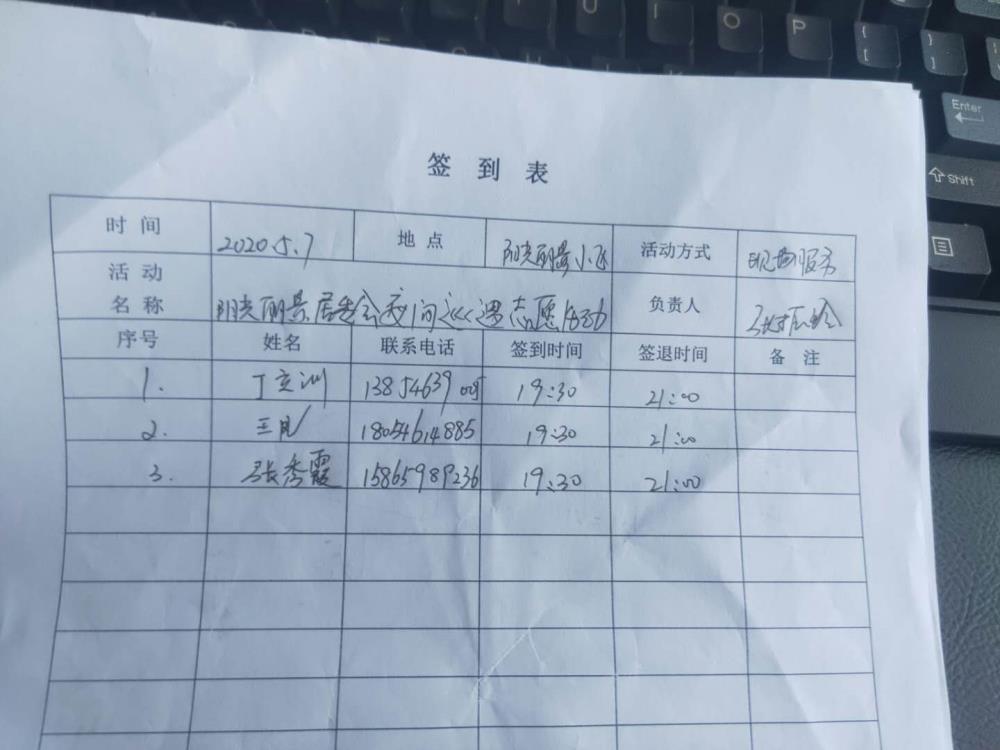 U I O P { [ } ]
Enter
Shift
签到表
时间 2020.5.7 地点 阳光丽景小区 活动方式 现场服务
活动名称 阳光丽景居委会夜间巡逻志愿活动 负责人
序号 姓名 联系电话 签到时间 签退时间 备注
1. 丁立训 13854639 19:30 21:00
2. 王 18054614885 19:30 21:00
3. 张秀霞 15865989236 19:30 21:00